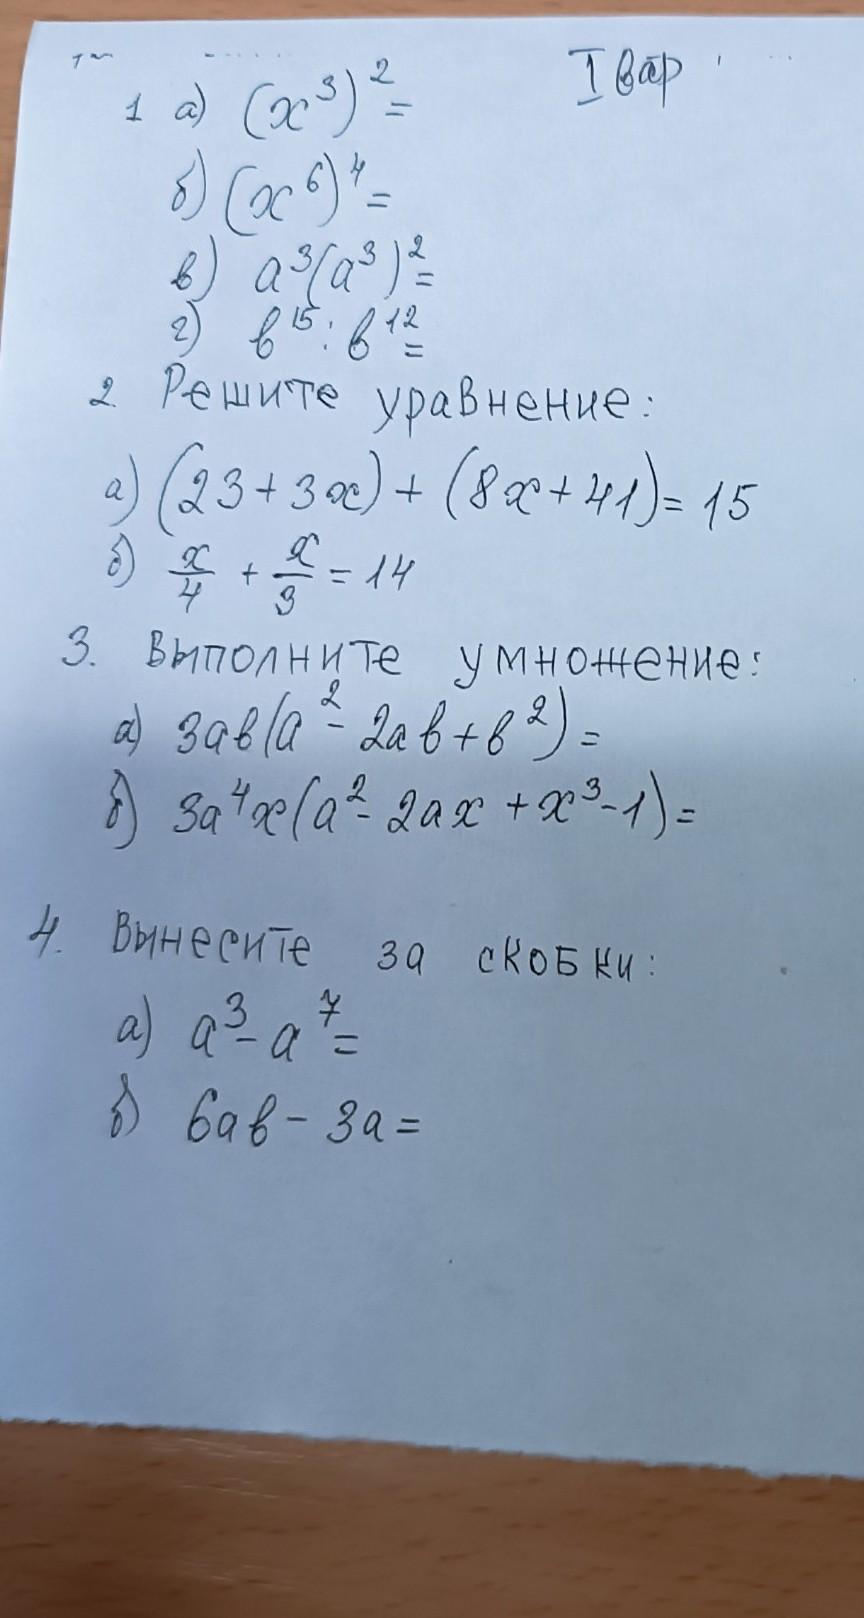 I вар
1 а) (x³)²=
б) (x⁶)⁴=
в) a³(a³)²=
г) b¹⁵:b¹²=
2. Решите уравнение:
а) (23+3x)+(8x+41)=15
б) x/4 + x/3 = 14
3. Выполните умножение:
а) 3ab(a²-2ab+b²)=
б) 3a⁴x(a²-2ax+x³-1)=
4. Вынесите за скобки:
а) a³-a⁷=
б) 6ab-3a=